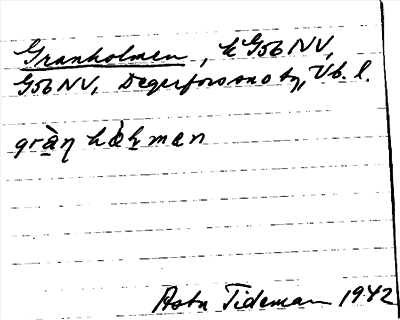 Granholmen, k G56 NV,
G56 NV, Degerfors sn o tg, Vb. l.
gràn hòlmen
Asta Tideman 1942